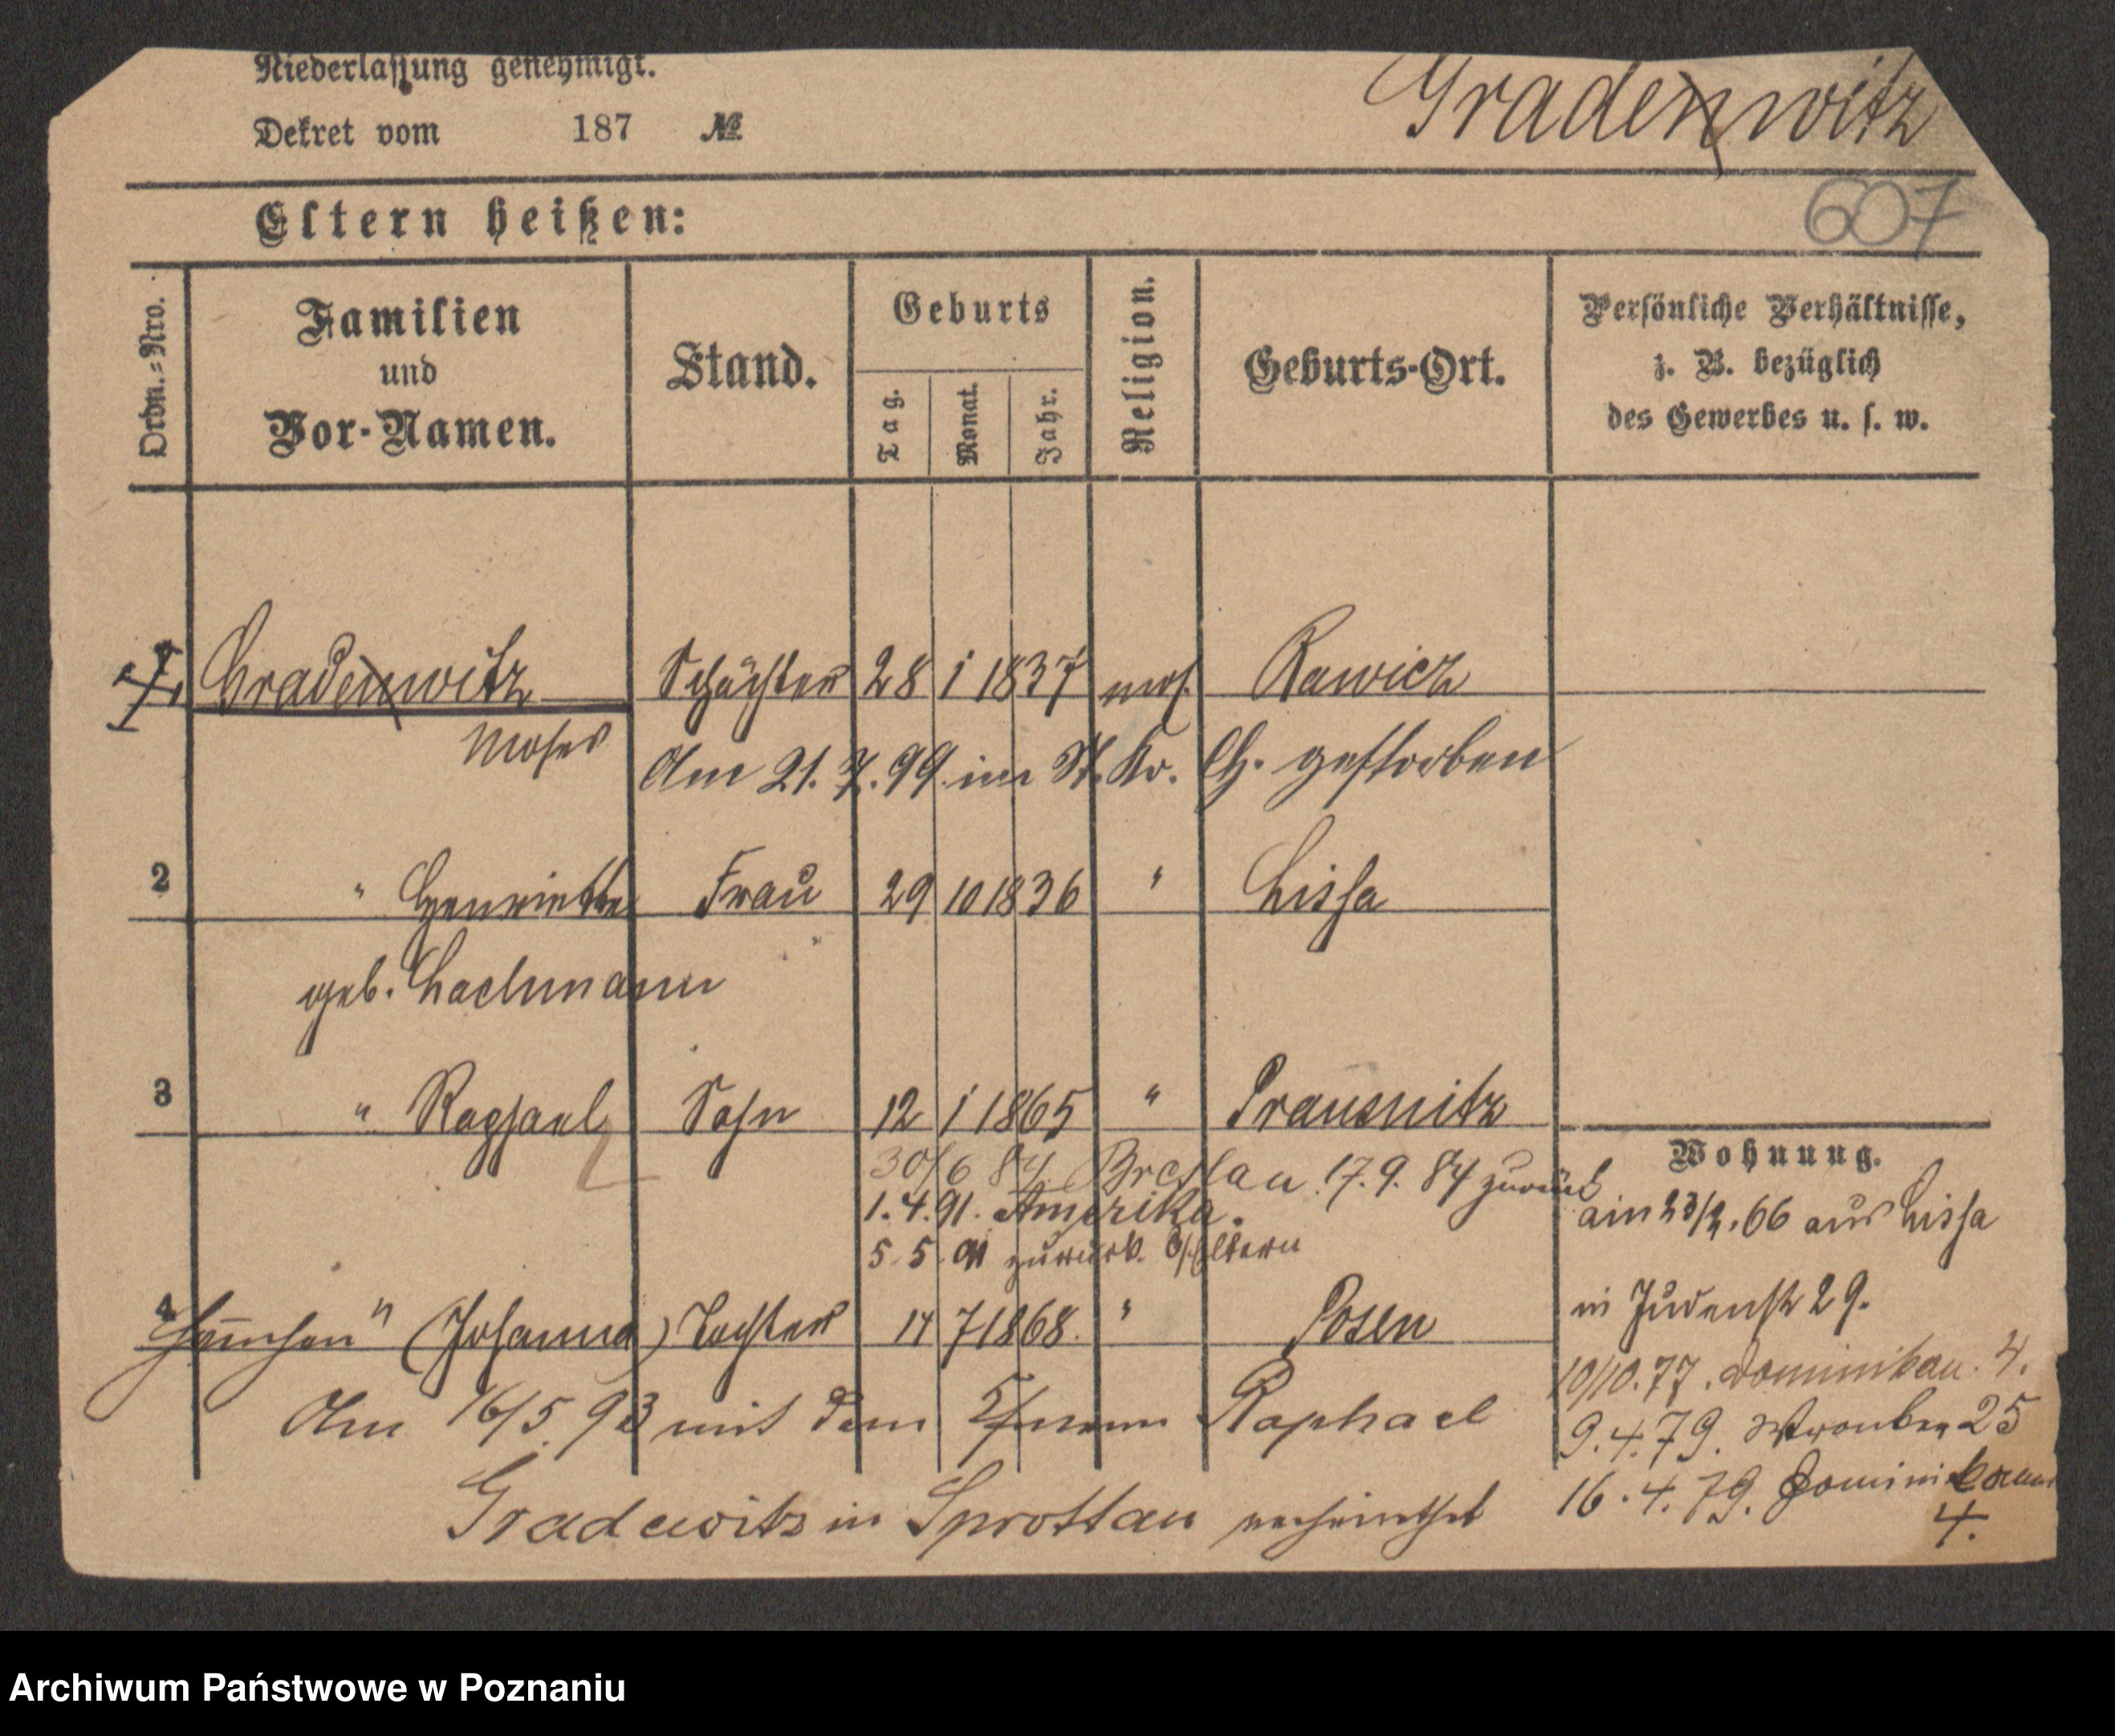 Niederlassung genehmigt.
Dekret vom 187 №
Gradenwitz
607
Eltern heißen:
Ordn.=Nro.
Familien
und
Vor-Namen.
Stand.
Geburts
Tag.
Monat.
Jahr.
Religion.
Geburts-Ort.
Persönliche Verhältnisse,
z. B. bezüglich
des Gewerbes u. s. w.
Gradenwitz Schächter 28 1 1837 mos. Rawicz
Moses
Am 21. 7. 99 im St. Kr. gestorben
2 " Henriette Frau 29 10 1836 " Lissa
geb. Lachmann
3 " Raphael Sohn 12 1 1865 " Prausnitz
30/6 84 Breslau 17. 9. 84 zurück
1. 4. 91. Amerika.
5. 5. 91 zurück Eltern
4 Hannchen " (Johanna) Tochter 14 7 1868. " Posen
Am 16/5. 93 mit dem Raphael
Gradewitz in Sprottau verheirathet
Wohnung.
am 23/2. 66 aus Lissa
in Judenstr 29.
10/10. 77. Dominikan. 4.
9. 4. 79. Wronker 25
16. 4. 79. Dominikaner
4.
Archiwum Państwowe w Poznaniu